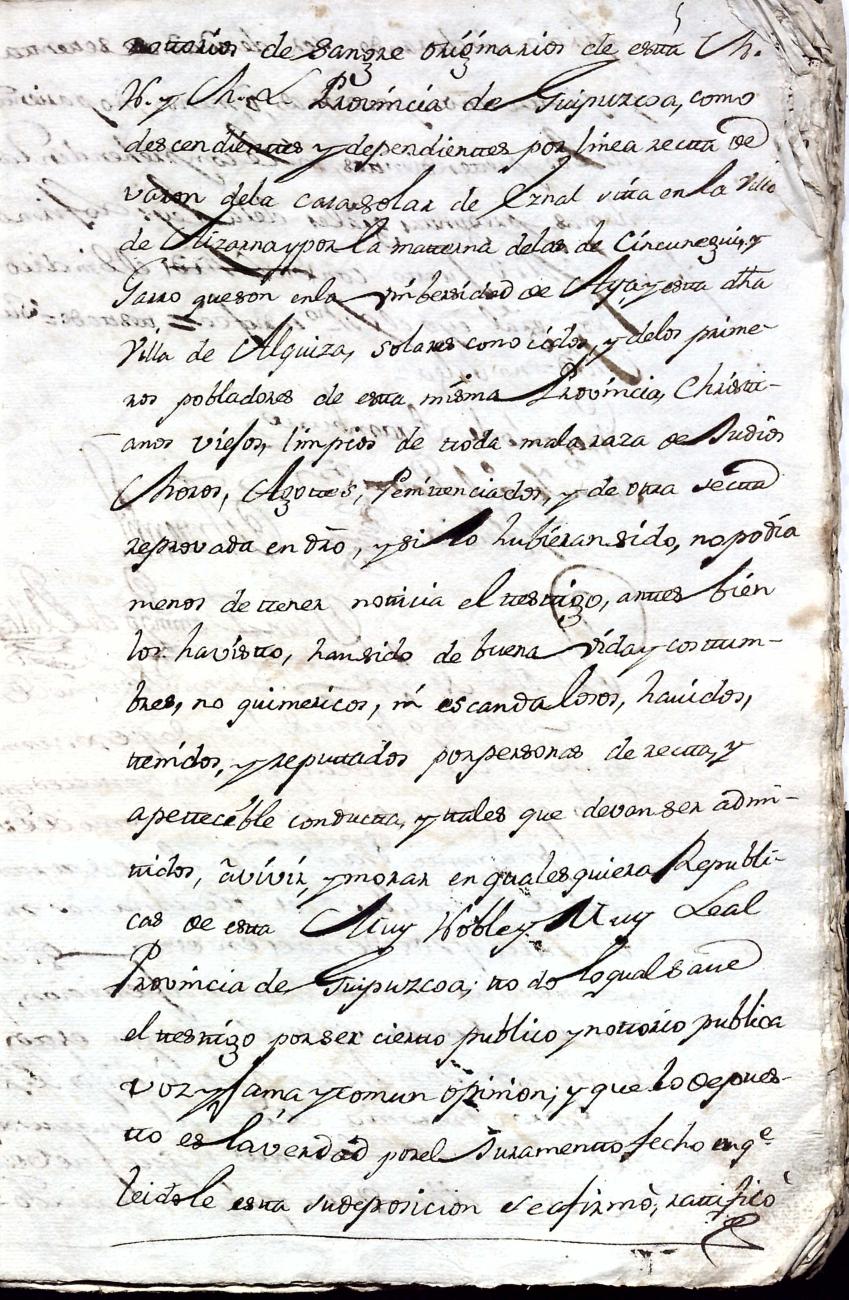 nottorios de sangre originarios de esta M.
N. y M. L. Provincia de Guipuzcoa, como
descendienttes y dependienttes por línea rectta de
varon dela casa solar de Eznal sitta en la Villa
de Aizarna y por la matterna delas de Cincunegui, y
Garro que son en la Vnibersidad de Aya, y estta dha
Villa de Alquiza, solares conocidos, y delos prime-
ros pobladores de estta misma Provincia, Christi-
anos viejos, limpios de ttoda mala raza de Judios
Moros, Agottes, Penittenciados, y de otra sectta
reprovada en dro, y si lo hubieran sido, no podia
menos de ttener notticia el testtigo, anttes bien
los ha visto, han sido de buena vida y costtum-
bres, no quimericos, ni escandalosos, havidos,
ttenidos, y reputtados por personas de rectta, y
apettecible conductta, y ttales que devan ser admi-
ttidos, á vivir y morar en qualesquiera Republi-
cas de estta Muy Noble y Muy Leal
Provincia de Guipuzcoa; ttodo lo qual save
el testtigo por ser cierto publico y nottorio publica
voz y fama y comun opinion; y que lo depues-
tto es la verdad por el Juramentto fecho en qe.
leidole estta su deposicion se afirmò, rattificò